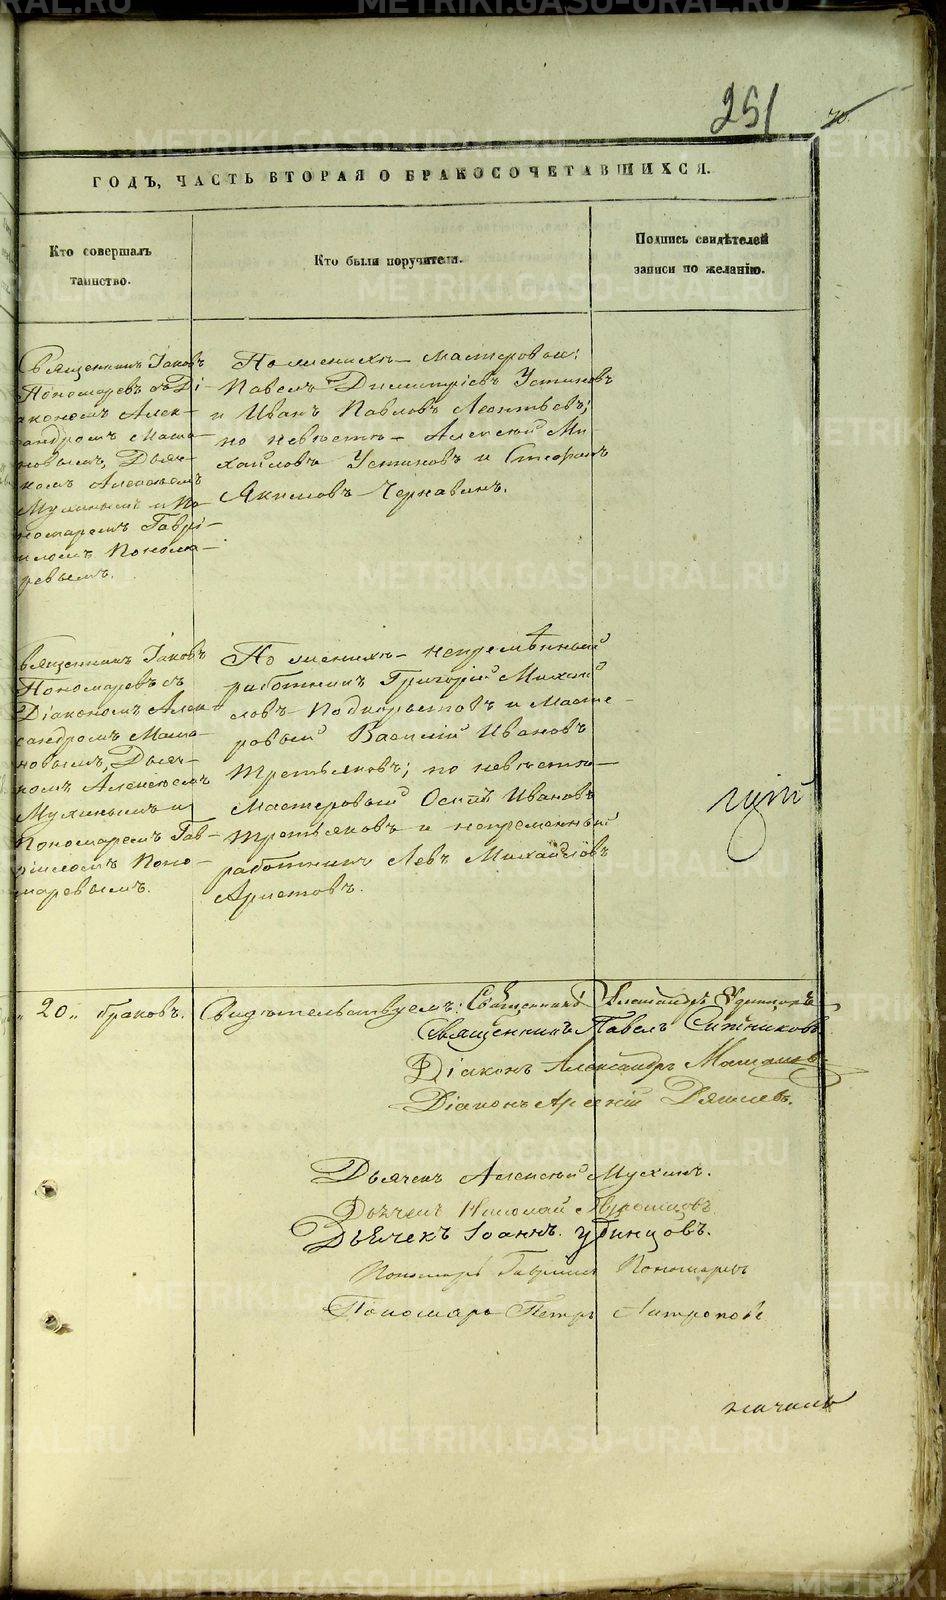 251
ГОДЪ, ЧАСТЬ ВТОРАЯ О БРАКОСОЧЕТАВШИХСЯ.
Кто совершалъ
таинство.
Кто были поручители.
Подпись свидѣтелей
записи по желанію.
Священникъ Іаковъ
Пономаревъ съ Ді-
акономъ Алек-
сандромъ Мама-
новымъ, Дьяч-
комъ Алексѣемъ
Мухинымъ и По-
номаремъ Гаврі-
иломъ Понома-
ревымъ.
По женихѣ – мастеровые:
Павелъ Димитріевъ Устиновъ
и Иванъ Павловъ Леонтьевъ;
по невѣстѣ – Алексѣй Ми-
хайловъ Устиновъ и Стефанъ
Якимовъ Чернавинъ.
Священникъ Іаковъ
Пономаревъ съ
Діакономъ Алек-
сандромъ Мама-
новымъ, Дьяч-
комъ Алексѣемъ
Мухинымъ и
Пономаремъ Гав-
ріиломъ Поно-
маревымъ.
По женихѣ – непремѣнный
работникъ Григорій Михай-
ловъ Подкорытовъ и масте-
ровый Василій Ивановъ
Третьяковъ; по невѣстѣ –
мастеровый Осипъ Ивановъ
Третьяковъ и непремѣнный
работникъ Левъ Михайловъ
Аристовъ.
20 браковъ.
Свидѣтельствуемъ: Священникъ Александръ
Священникъ Павелъ Ситниковъ
Діаконъ Александръ Мамановъ
Діаконъ Арсеній
Дьячекъ Алексѣй Мухинъ.
Дьячекъ Николай
Дьячекъ Іоаннъ Убинцовъ.
Пономарь Гавріилъ Пономаревъ
Пономарь Петръ
METRIKI.GASO-URAL.RU